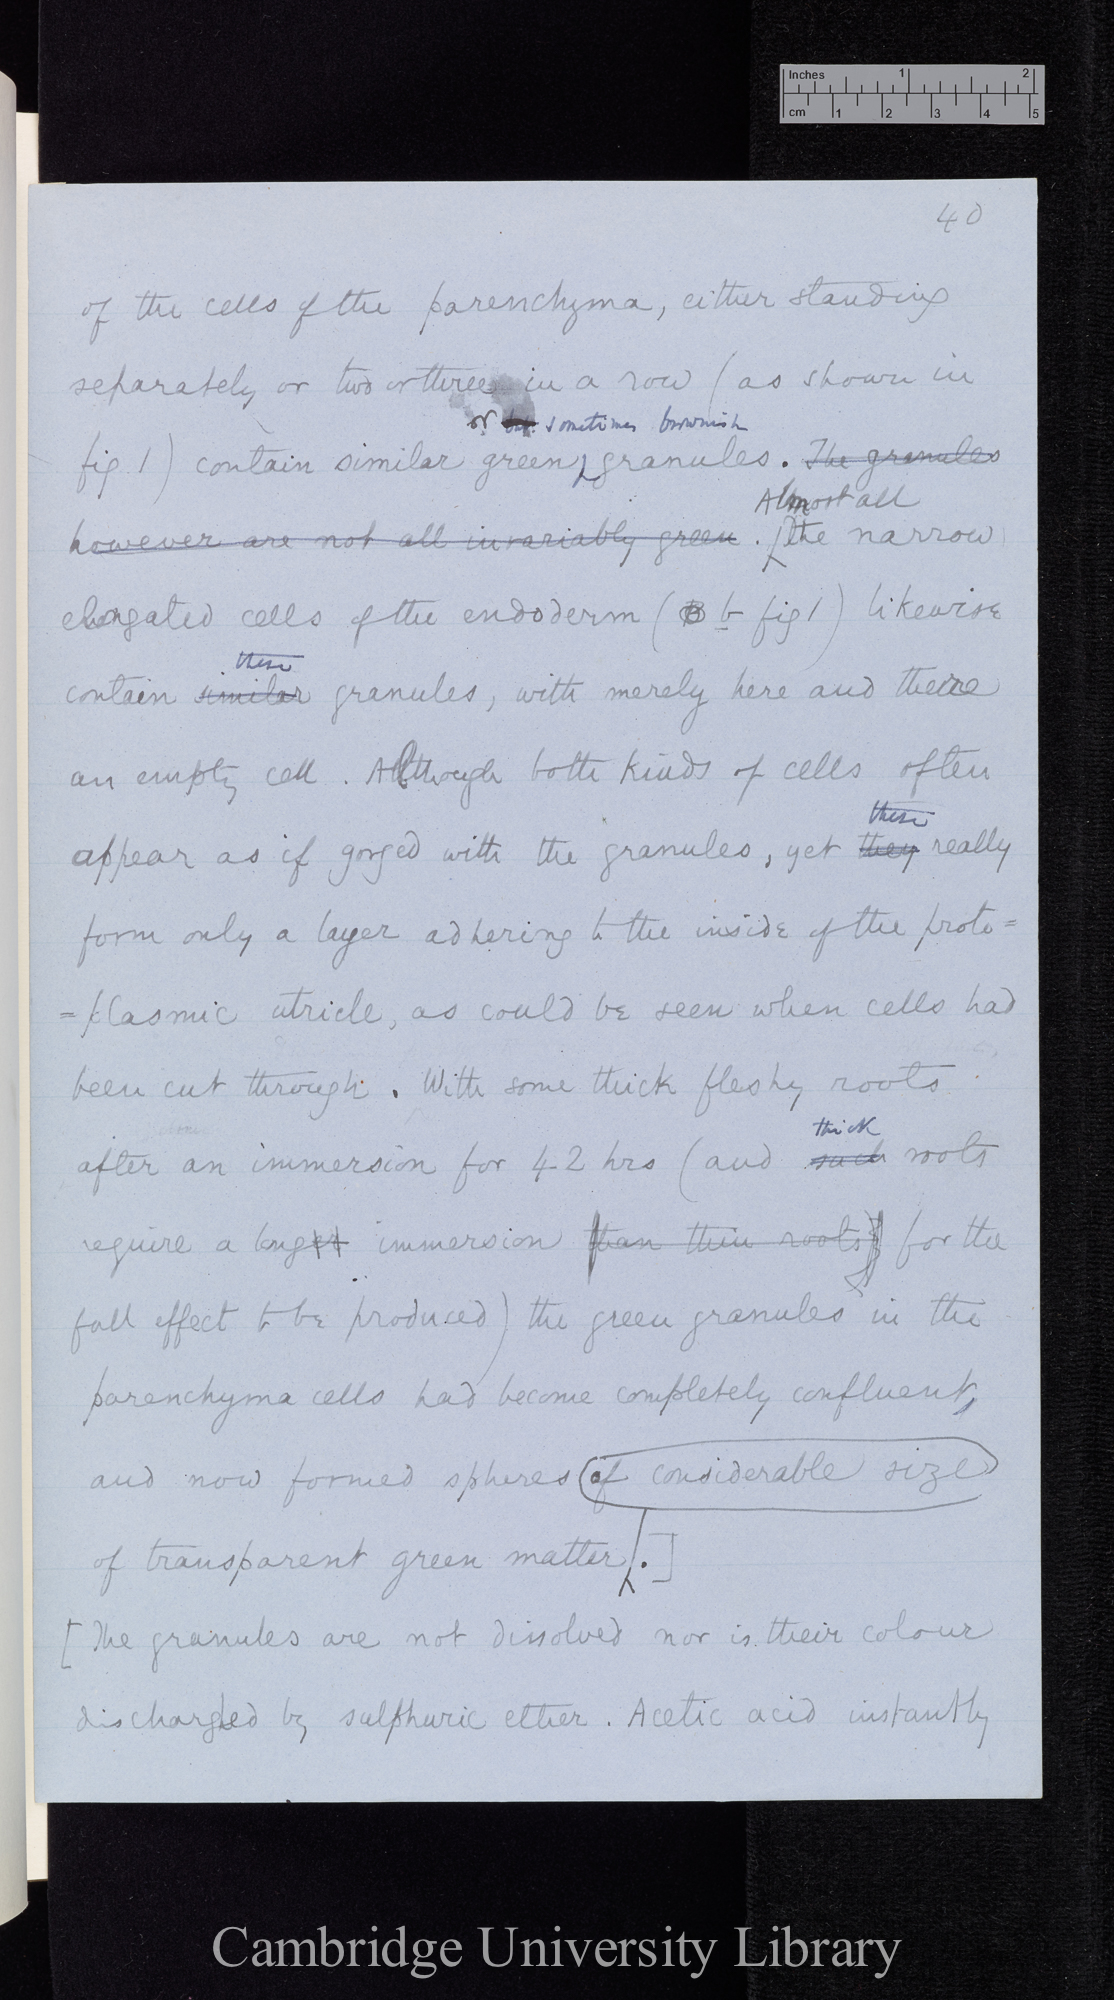 Inches 1 2
cm 1 2 3 4 5
40
of the cells of the parenchyma, either standing
separately or two or three in a row (as shown in
or but sometimes brownish
fig. 1) contain similar green, granules. The granules
Almost all
however are not all invariably green. [the narrow
elongated cells of the endoderm (B b fig 1) likewise
these
contain similar granules, with merely here and there
an empty cell. Although both kinds of cells often
these
appear as if gorged with the granules, yet they really
form only a layer adhering to the inside of the proto=
=plasmic utricle, as could be seen when cells had
been cut through. With some thick fleshy roots
thick
after an immersion for 42 hrs (and such roots
require a longer immersion than thin roots) for the
full effect to be produced) the green granules in the
parenchyma cells had become completely confluent,
and now formed spheres of considerable size
of transparent green matter.]
[The granules are not dissolved nor is their colour
discharged by sulphuric ether. Acetic acid instantly
Cambridge University Library